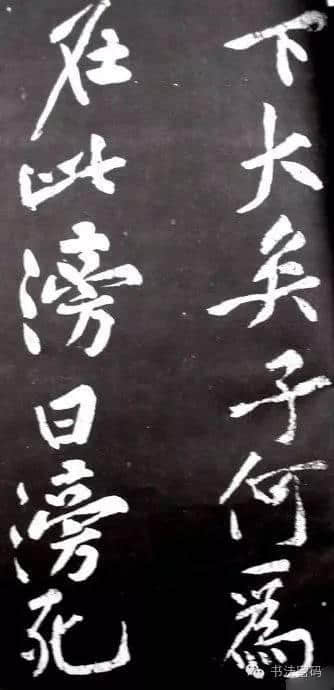 下大矣子何為
在此滂曰滂死
书法密码